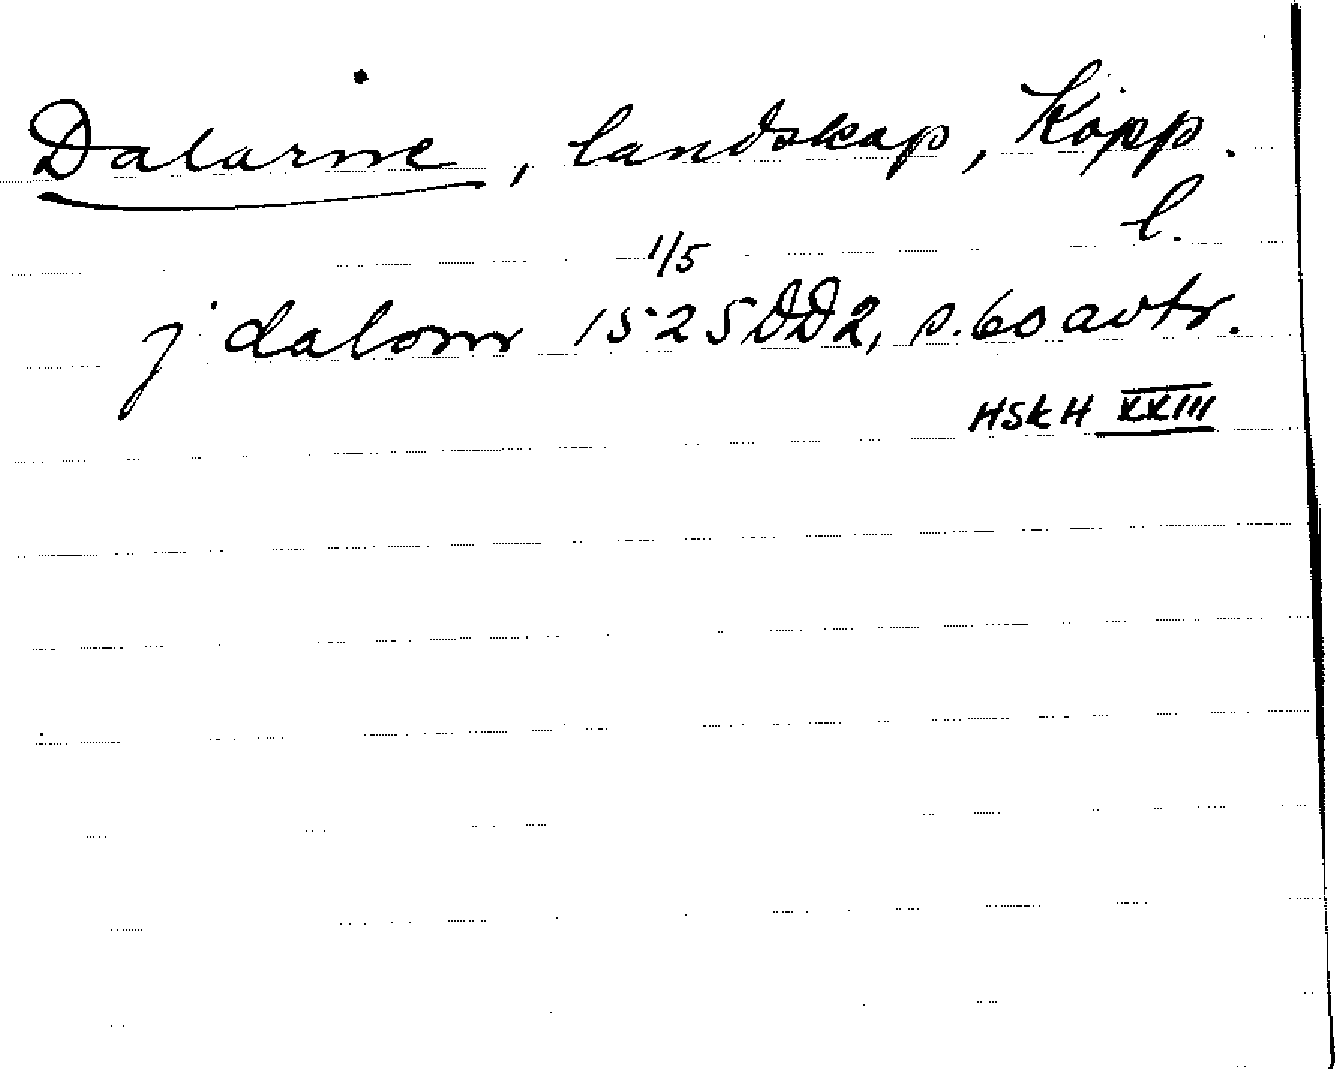 Dalarne, landskap, Kopp.
l.
1/5
j dalom 1525 DD2, s. 60 avtr.
HSkH XXIII